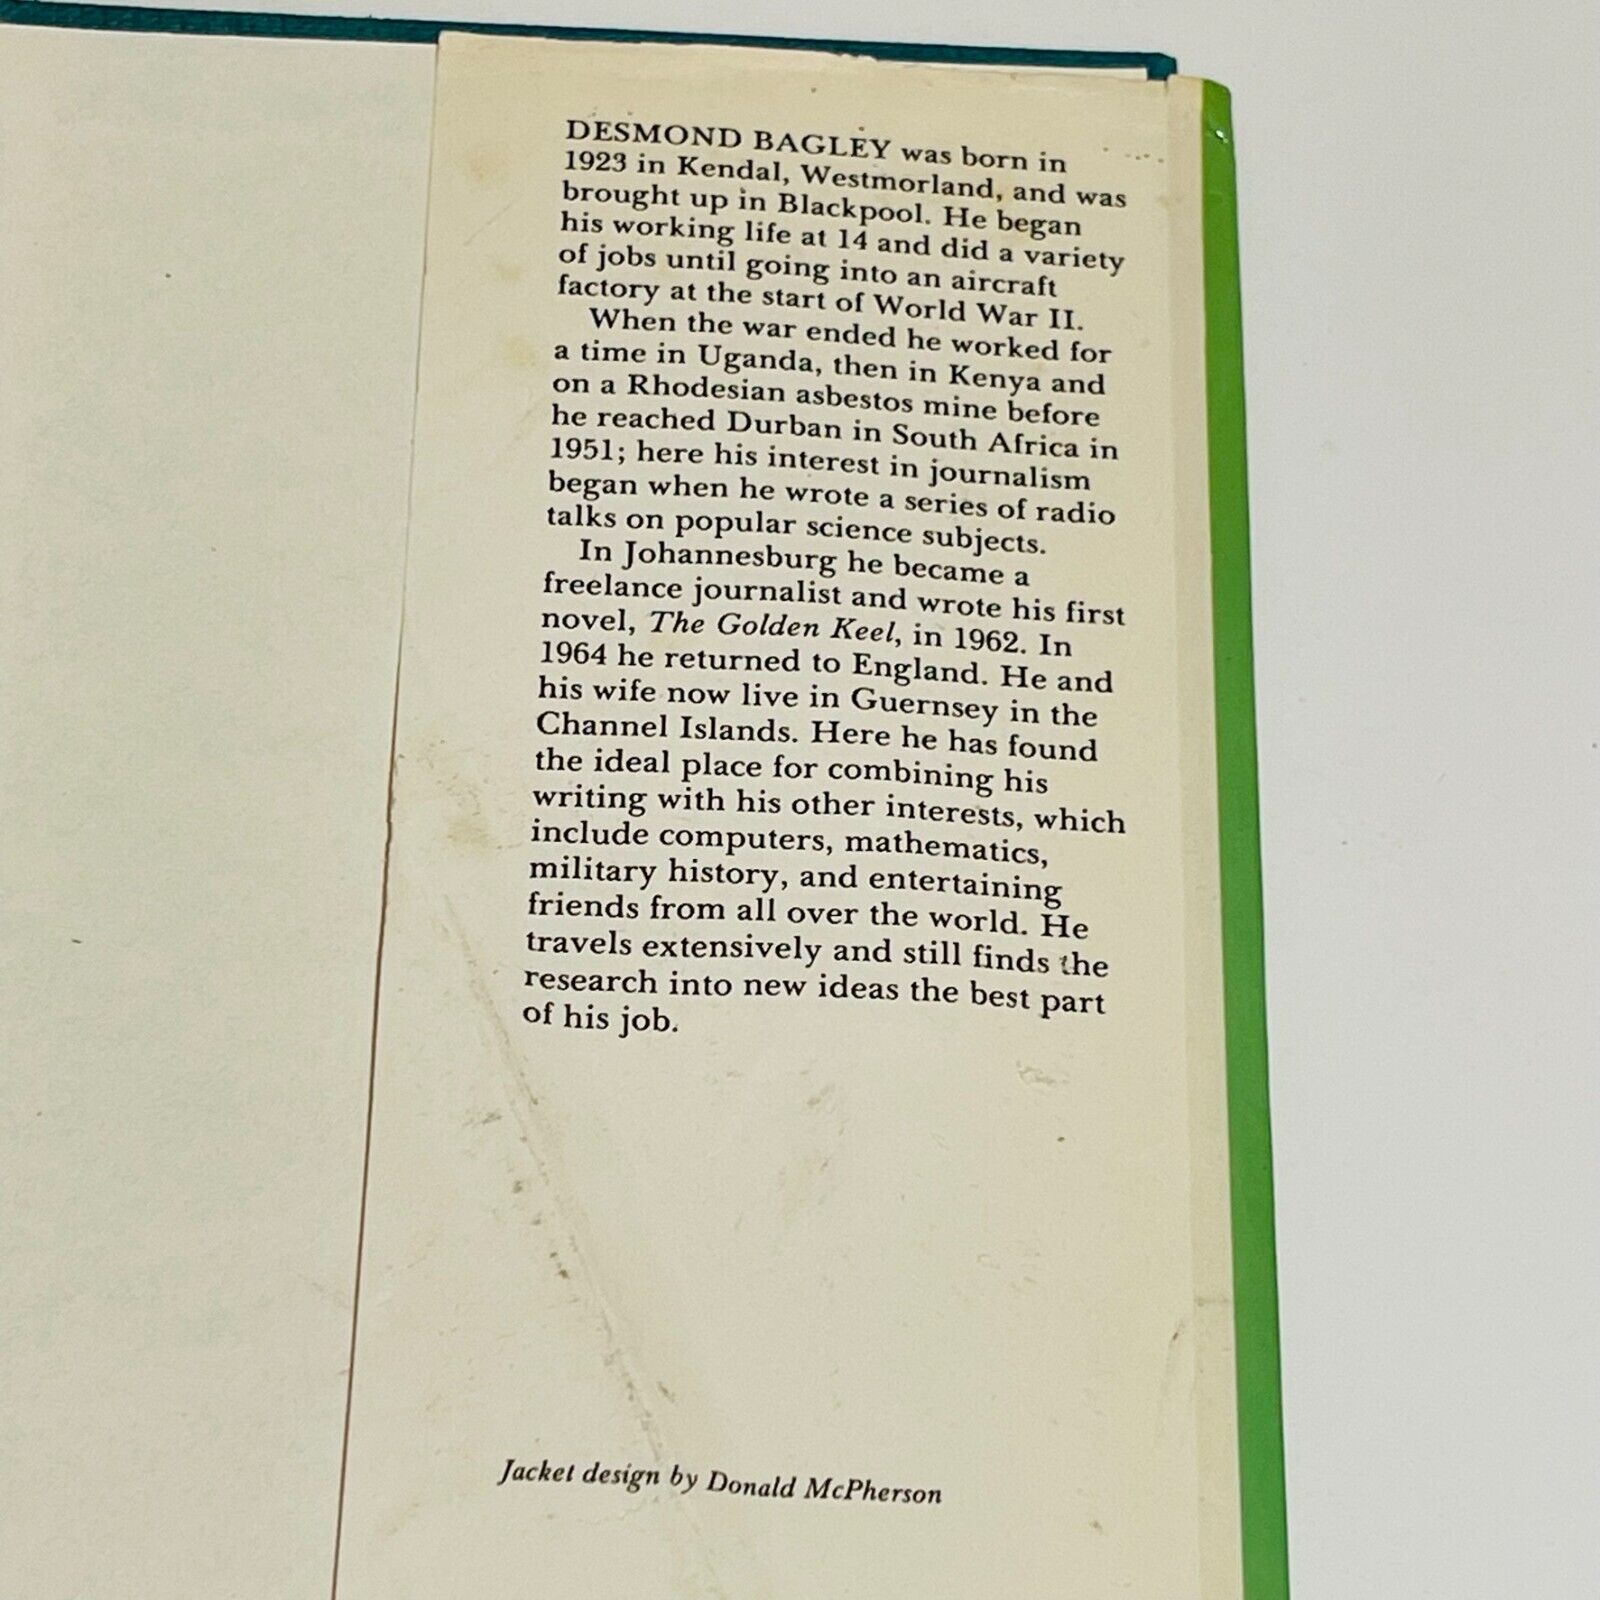 DESMOND BAGLEY was born in
1923 in Kendal, Westmorland, and was
brought up in Blackpool. He began
his working life at 14 and did a variety
of jobs until going into an aircraft
factory at the start of World War II.
When the war ended he worked for
a time in Uganda, then in Kenya and
on a Rhodesian asbestos mine before
he reached Durban in South Africa in
1951; here his interest in journalism
began when he wrote a series of radio
talks on popular science subjects.
In Johannesburg he became a
freelance journalist and wrote his first
novel, The Golden Keel, in 1962. In
1964 he returned to England. He and
his wife now live in Guernsey in the
Channel Islands. Here he has found
the ideal place for combining his
writing with his other interests, which
include computers, mathematics,
military history, and entertaining
friends from all over the world. He
travels extensively and still finds the
research into new ideas the best part
of his job.
Jacket design by Donald McPherson